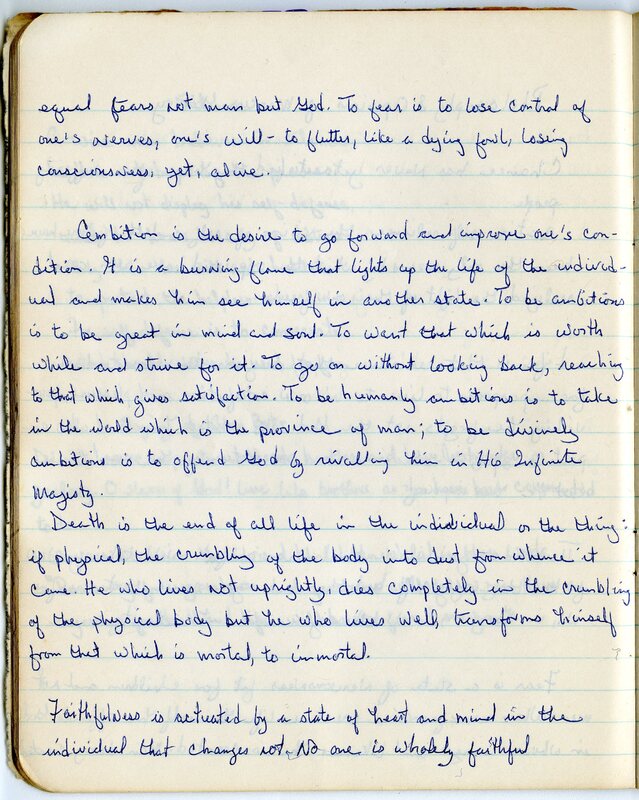 equal fears not man but God. To fear is to lose control of
one's nerves, one's will - to flutter, like a dying fowl, losing
consciousness, yet, alive.
Ambition is the desire to go forward and improve one's con-
dition. It is a burning flame that lights up the life of the individ-
ual and makes him see himself in another state. To be ambitious
is to be great in mind and soul. To want that which is worth
while and strive for it. To go on without looking back, reaching
to that which gives satisfaction. To be humanly ambitious is to take
in the world which is the province of man; to be divinely
ambitious is to offend God by rivalling him in His Infinite
Majesty.
Death is the end of all life in the individual or the thing;
if physical, the crumbling of the body into dust from whence it
came. He who lives not uprightly, dies completely in the crumbling
of the physical body but he who lives well, transforms himself
from that which is mortal, to immortal.
Faithfulness is actuated by a state of heart and mind in the
individual that changes not. No one is wholely faithful